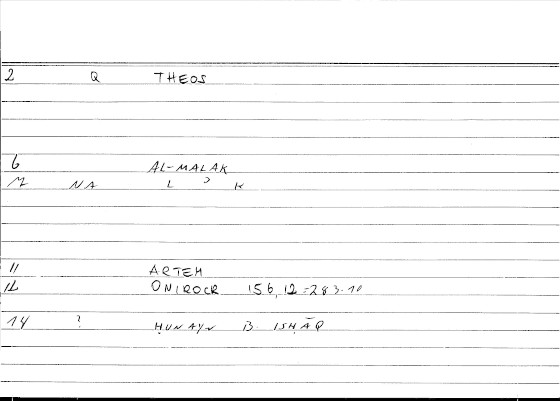 2 Q THEOS
6 AL-MALAK
M NA L ʾ K
11 ARTEM
12 ONIROCR 156,12=283.10
14 ? ḤUNAYN B. ISḤĀQ